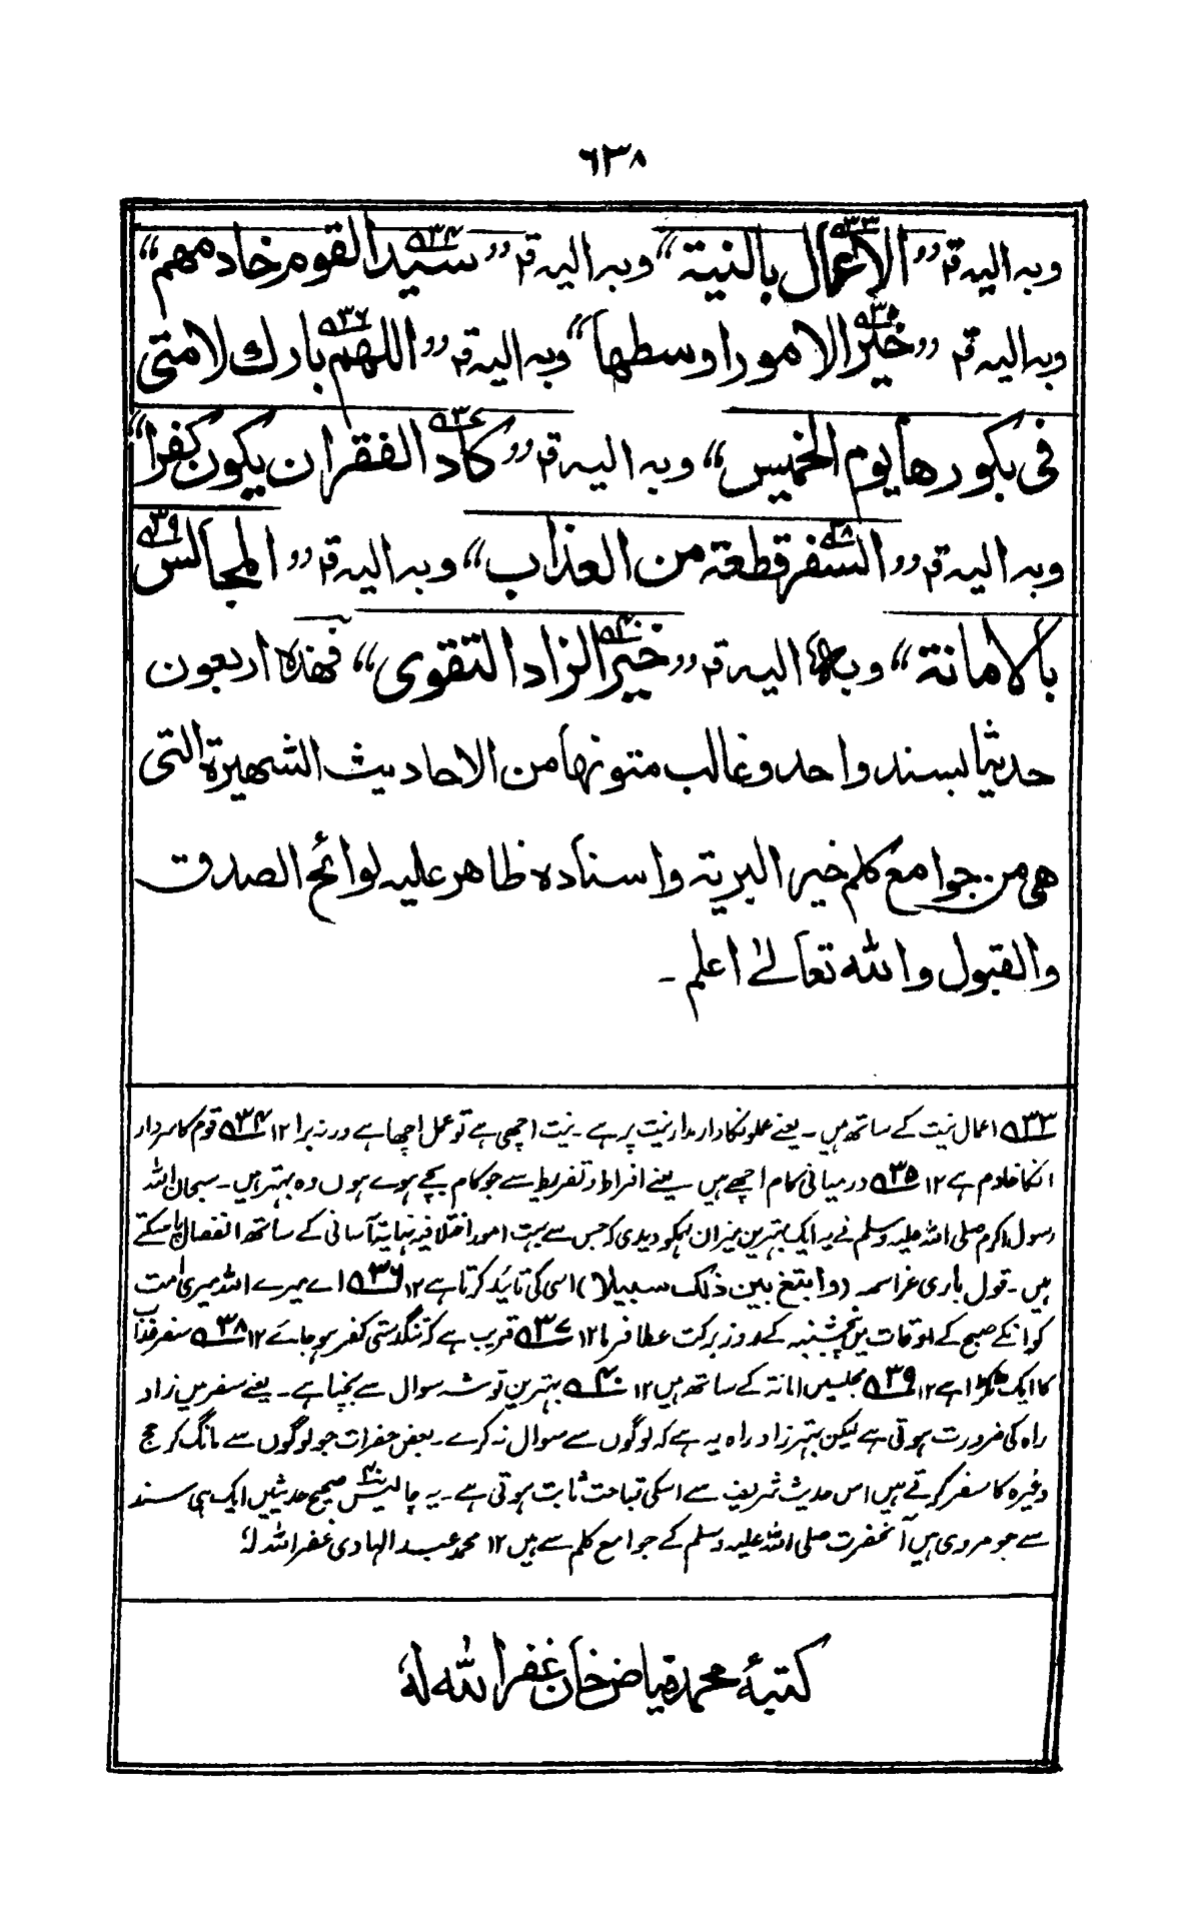 ٦٣٨
وبہ الیہ قم ”الاعمال بالنیۃ“ وبہ الیہ قم ”سید القوم خادمہم“
وبہ الیہ قم ”خیر الامور اوسطہا“ وبہ الیہ قم ”اللہم بارك لامتی
فی بکورھا یوم الخمیس“ وبہ الیہ قم ”کاد الفقر ان یکون کفرا“
وبہ الیہ قم ”السفر قطعۃ من العذاب“ وبہ الیہ قم ”المجالس
بالامانۃ“ وبہ الیہ قم ”خیر الزاد التقوی“ فھذہ اربعون
حدیثا بسند واحد وغالب متونہا من الاحادیث الشھیرۃ التی
ھی من جوامع کلم خیر البریۃ واسنادہ ظاھر علیہ لوائح الصدق
والقبول واللہ تعالیٰ اعلم۔
۳۳ اعمال نیت کے ساتھ ہیں۔ یعنے عملونکا دارمدار نیت پر ہے۔ نیت اچھی ہے تو عمل اچھا ہے ورنہ برا ۱۲ ۳۴ قوم کا سردار
انکا خادم ہے ۱۲ ۳۵ درمیانی کام اچھے ہیں یعنے افراط و تفریط سے جو کام بچے ہوے ہوں وہ بہتر ہیں۔ سبحان اللہ
رسول اکرم صلی اللہ علیہ وسلم نے یہ ایک بہترین میزان ہمکو دیدی کہ جس سے بہت امور اختلافیہ نہایت آسانی کے ساتھ انفصال پا سکتے
ہیں۔ قول باری عز اسمہ (وابتغ بین ذلک سبیلا) اسی کی تائید کرتا ہے ۱۲ ۳۶ اے میرے اللہ میری امت
کو انکے صبح کے اوقات میں پنجشنبہ کے روز برکت عطا فرما ۱۲ ۳۷ قریب ہے کہ تنگدستی کفر ہو جائے ۱۲ ۳۸ سفر عذاب
کا ایک ٹکڑا ہے ۱۲ ۳۹ مجلسیں امانۃ کے ساتھ ہیں ۱۲ ۴۰ بہترین توشہ سوال سے بچنا ہے۔ یعنے سفر میں زاد
راہ کی ضرورت ہوتی ہے لیکن بہتر زاد راہ یہ ہے کہ لوگوں سے سوال نہ کرے۔ بعض حضرات جو لوگوں سے مانگ کر حج
وغیرہ کا سفر کرتے ہیں اس حدیث شریف سے اسکی قباحت ثابت ہوتی ہے۔ یہ چالیس ۴۰ صحیح حدیثیں ایک ہی سند
سے جو مروی ہیں آنحضرت صلی اللہ علیہ وسلم کے جوامع کلم سے ہیں ۱۲ محمد عبد الہادی غفر اللہ لہٗ
کتبہٗ محمد فیاض خان غفر اللہ لہٗ